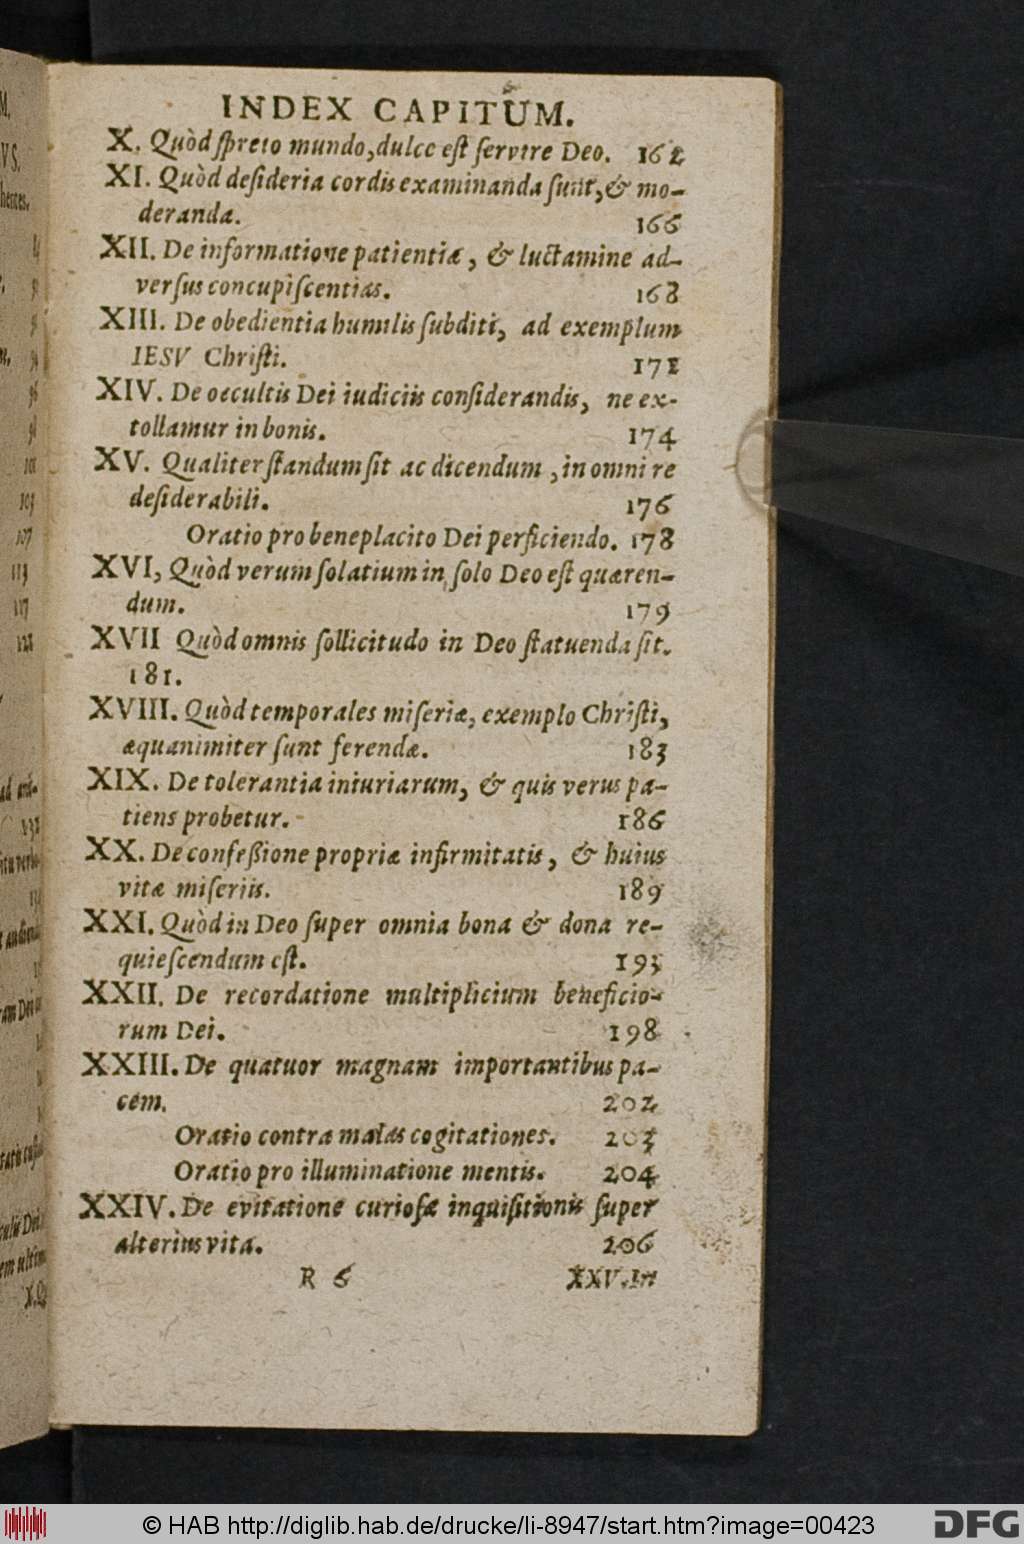 INDEX CAPITUM.
X. Quòd ſpreto mundo, dulce eſt ſervire Deo. 162
XI. Quòd deſideria cordis examinanda ſunt, & mo-
deranda. 166
XII. De informatione patientiæ, & luctamine ad-
verſus concupiſcentias. 168
XIII. De obedientia humilis ſubditi, ad exemplum
IESV Chriſti. 171
XIV. De occultis Dei iudiciis conſiderandis, ne ex-
tollamur in bonis. 174
XV. Qualiter ſtandum ſit ac dicendum, in omni re
deſiderabili. 176
Oratio pro beneplacito Dei perficiendo. 178
XVI, Quòd verum ſolatium in ſolo Deo eſt quæren-
dum. 179
XVII Quòd omnis ſollicitudo in Deo ſtatuenda ſit.
181.
XVIII. Quòd temporales miſeriæ, exemplo Chriſti,
æquanimiter ſunt ferendæ. 183
XIX. De tolerantia iniuriarum, & quis verus pa-
tiens probetur. 186
XX. De confeßione propriæ infirmitatis, & huius
vitæ miſeriis. 189
XXI. Quòd in Deo ſuper omnia bona & dona re-
quieſcendum eſt. 193
XXII. De recordatione multiplicium beneficio-
rum Dei. 198
XXIII. De quatuor magnam importantibus pa-
cem. 202
Oratio contra malas cogitationes. 203
Oratio pro illuminatione mentis. 204
XXIV. De evitatione curioſæ inquiſitionis ſuper
alterius vita. 206
R 6 XXV. In
© HAB http://diglib.hab.de/drucke/li-8947/start.htm?image=00423
DFG